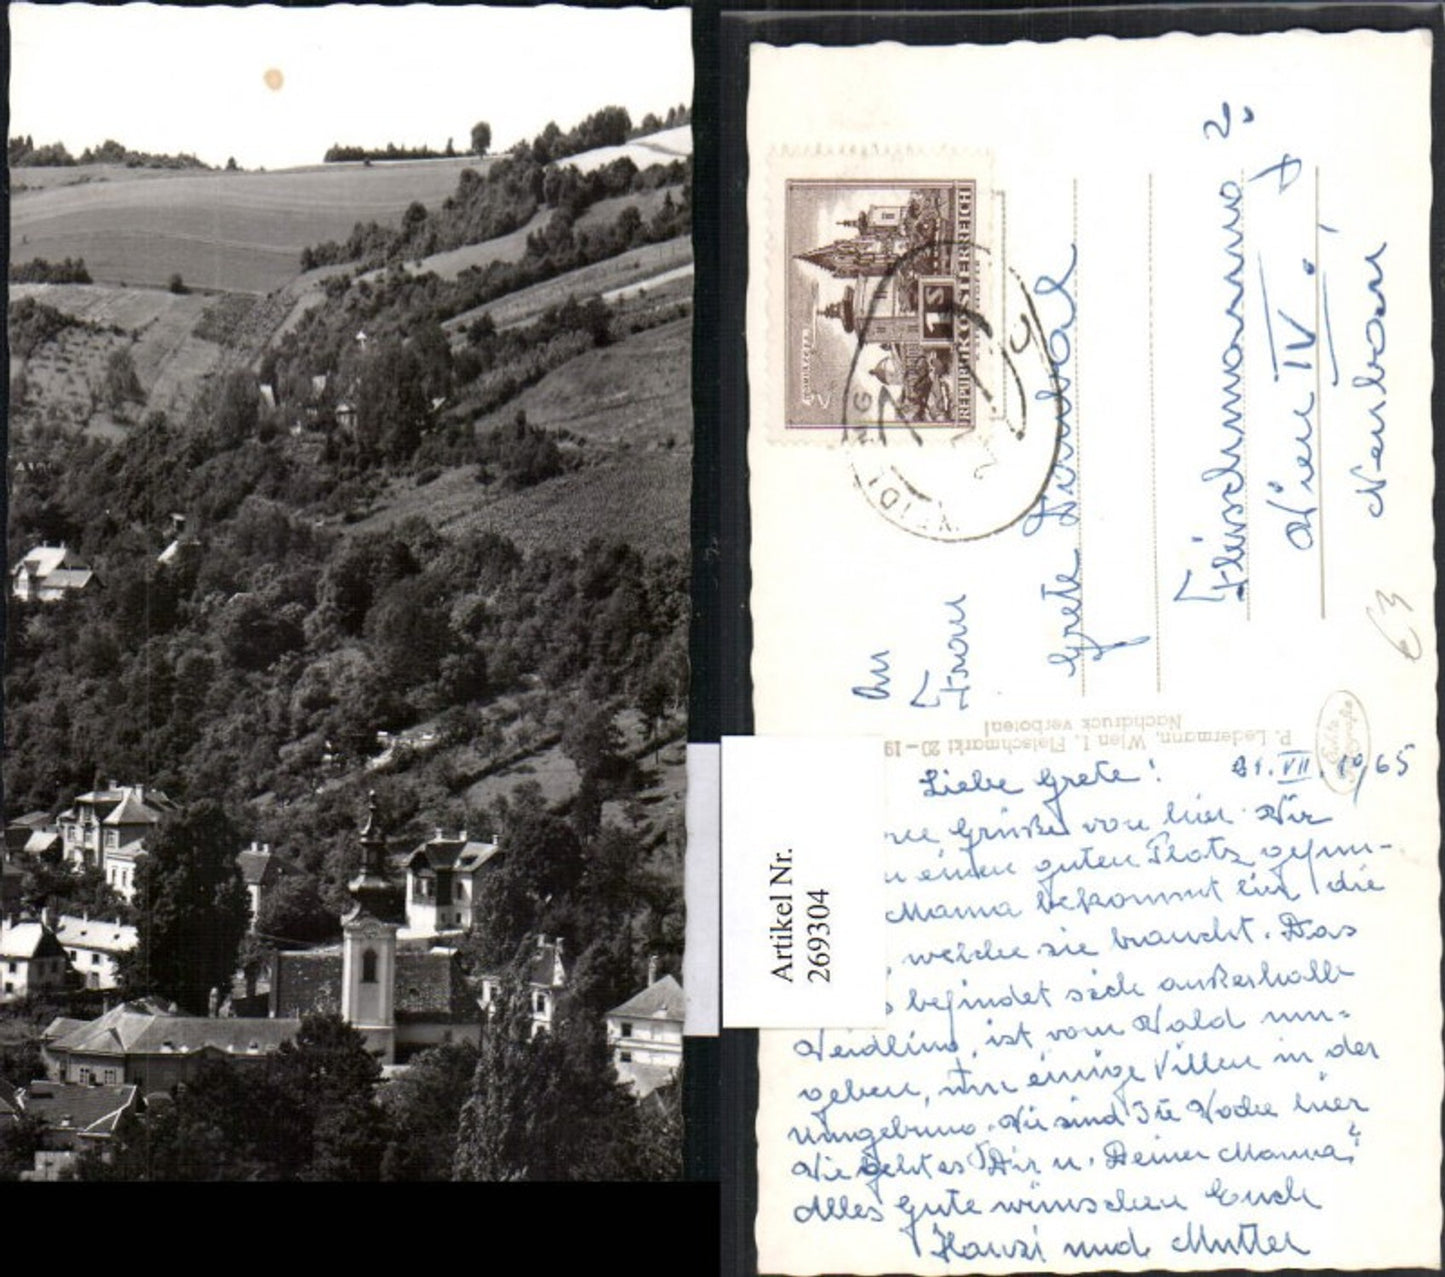 REPUBLIK ÖSTERREICH
1S
WEIDLING
An
Frau
Grete
2.
Wien IV.
€3
P. Ledermann, Wien I, Fleischmarkt 20-19
Nachdruck verboten!
Echte
Artikel Nr.
269304
VII. 1965
Liebe Grete!
Grüße von hier. Wir
einen guten Platz gefun-
Mama bekommt hier die
, welche sie braucht. Das
befindet sich außerhalb
Weidling, ist vom Wald um-
geben, nur einige Villen in der
Umgebung. Wir sind Woche hier
Wie geht es Dir u. Deiner Mama?
Alles Gute wünschen Euch
Hansi und Mutter